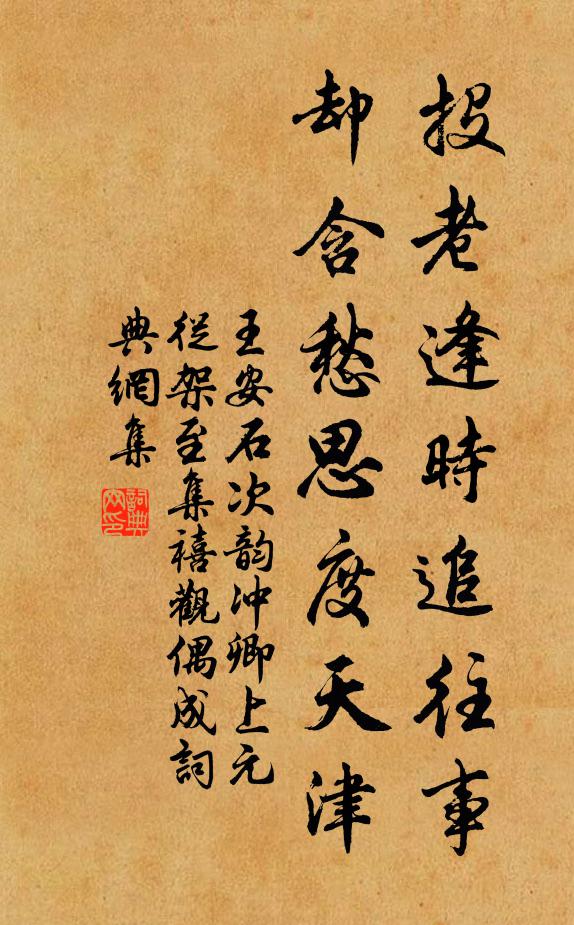 投老逢時追往事
却含愁思度天津
王安石次韵冲卿上元
從架至集禧觀偶成詞
典網集
詞典
网印